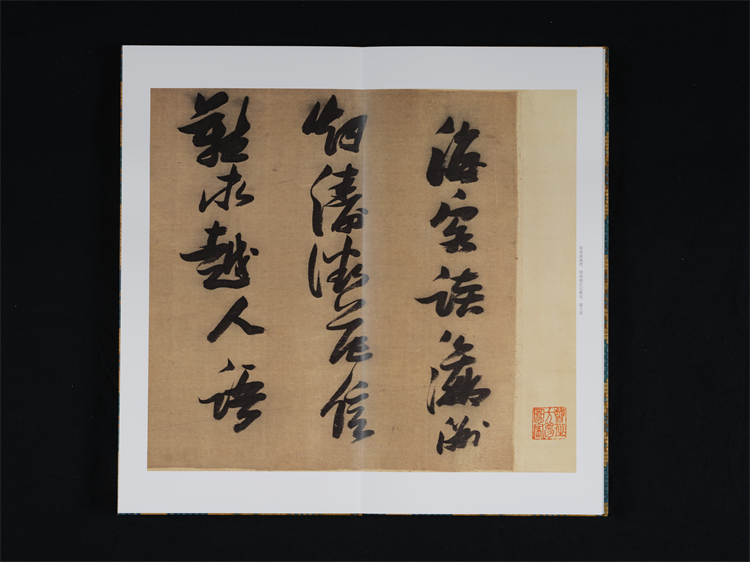 海客談瀛洲
烟濤微茫信
難求越人語